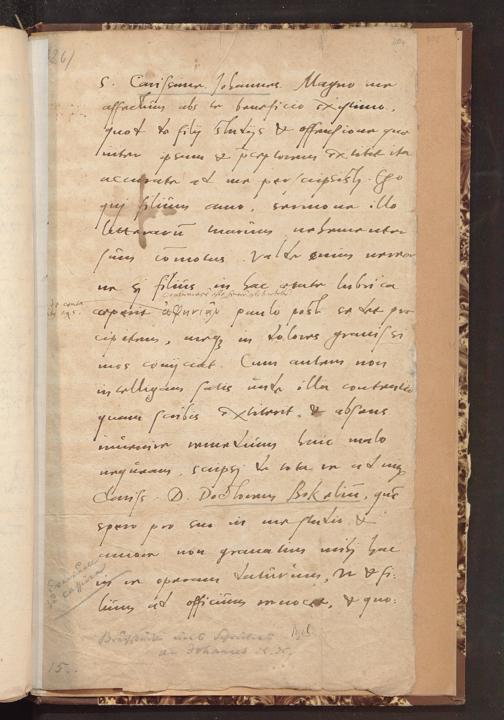 S. Carissime Johannes. Magno me
affectum abs te beneficio existimo,
quod de filij studijs & offensione quae
inter ipsum & praeceptorem extitit ita
accurate ad me perscripsisti. Ego
qui filium amo, sermone illo
litterarum tuarum vehementer
sum commotus. Valde enim vereor
ne si filius in hac aetate lubrica
coeperit paulo post se det prae
cipitem, meque in dolores gravissi
mos conijciat. Cum autem non
intelligam satis unde illa contentio
quam scribis extiterit, & absens
invenire remedium huic malo
nequeam, scripsi de tota re ad
clariss. D. Doctorem Bokelium, quem
spero pro suo in me studio &
amore non gravatim mihi hac
in re operam daturum, ut & fi-
lium ad officium revocet, & quo-
an Johannes
15.